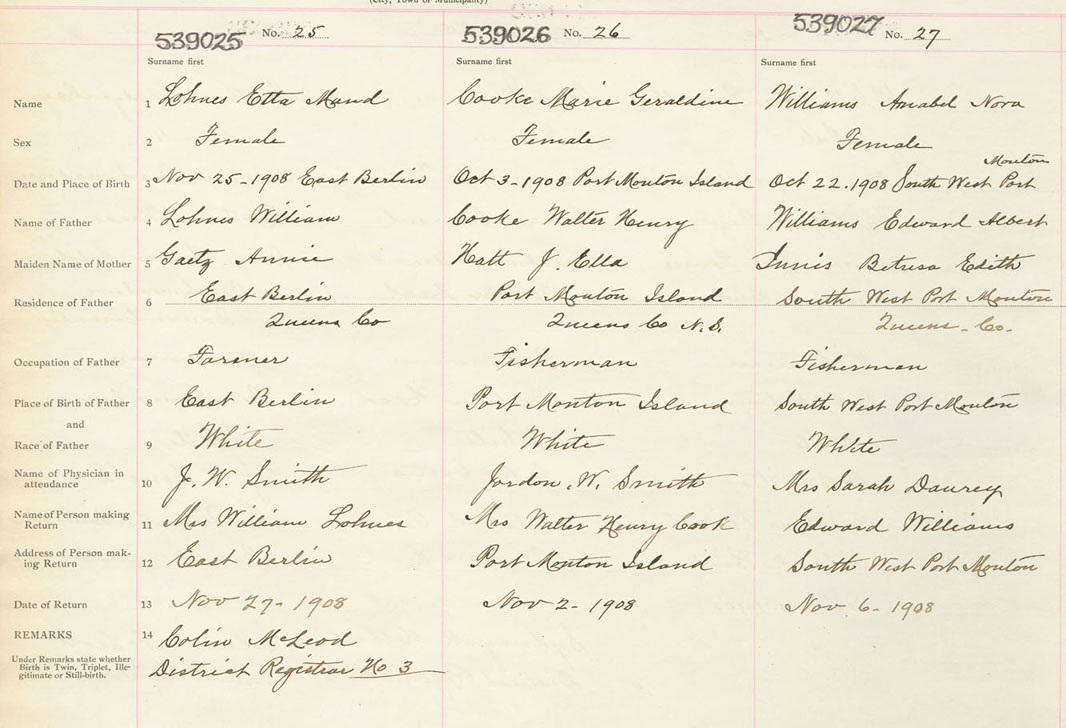 (City, Town or Municipality)
539025 No. 25 539026 No. 26 539027 No. 27
Surname first Surname first Surname first
Name 1 Lohnes Etta Maud Cooke Marie Geraldine Williams Anabel Nora
Sex 2 Female Female Female
Mouton
Date and Place of Birth 3 Nov 25-1908 East Berlin Oct 3-1908 Port Mouton Island Oct 22.1908 South West Port
Name of Father 4 Lohnes William Cooke Walter Henry Williams Edward Albert
Maiden Name of Mother 5 Gaetz Annie Hatt J. Ella Innis Betresa Edith
Residence of Father 6 East Berlin Port Mouton Island South West Port Mouton
Queens Co Queens Co N.S. Queens-Co-
Occupation of Father 7 Farmer Fisherman Fisherman
Place of Birth of Father 8 East Berlin Port Mouton Island South West Port Mouton
and
Race of Father 9 White White White
Name of Physician in
attendance 10 J. W. Smith Jordon. W. Smith Mrs Sarah Daurey
Name of Person making
Return 11 Mrs William Lohnes Mrs Walter Henry Cook Edward Williams
Address of Person mak-
ing Return 12 East Berlin Port Mouton Island South West Port Mouton
Date of Return 13 Nov 27-1908 Nov 2-1908 Nov 6-1908
REMARKS 14 Colin McLeod
Under Remarks state whether
Birth is Twin, Triplet, Ille-
gitimate or Still-birth.
District Registrar No 3